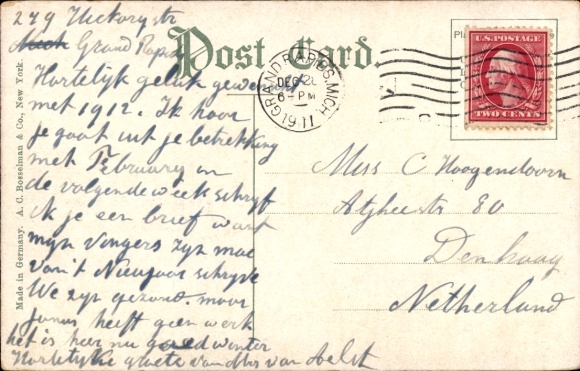 279 Hickory str
Mich Grand Rapids
Hartelijk geluk gewenscht
met 1912. Ik hoor
je gaat uit je betrekking
met February in
de volgende week schryf
ik je een brief want
myn vingers zyn moe
van't Nieuwjaar schryve
We zyn gezond. maar
heeft geen werk
het is hier nu goed winter
Hartelyke groete van Mrs van Aelst
Post Card.
Made in Germany. A. C. Bosselman & Co., New York.
GRAND RAPIDS, MICH.
DEC 2
6-PM
1911
U.S. POSTAGE
TWO CENTS
Pla
Miss C Hoogendoorn
80
Den haag
Netherland